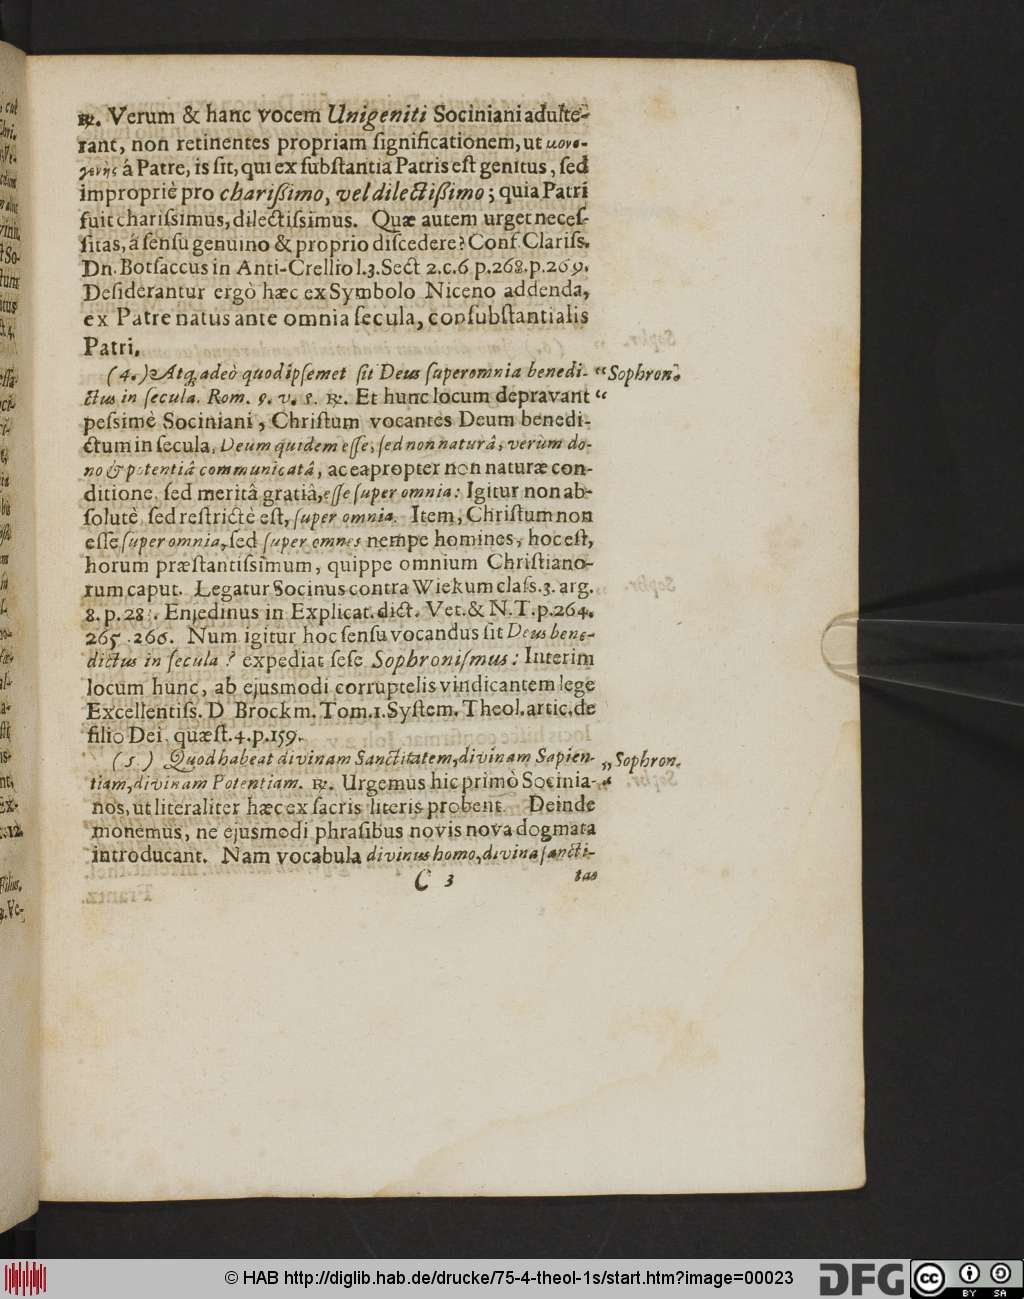 ℟. Verum & hanc vocem Unigeniti Sociniani adulte-
rant, non retinentes propriam ſignificationem, ut μονο-
γενὴς á Patre, is ſit, qui ex ſubſtantia Patris eſt genitus, ſed
impropriè pro chariſsimo, vel dilectiſsimo; quia Patri
fuit chariſsimus, dilectiſsimus. Quæ autem urget neceſ-
ſitas, á ſenſu genuino & proprio diſcedere? Conf. Clariſs.
Dn. Botſaccus in Anti-Crellio l. 3. Sect 2. c. 6 p. 268. p. 269.
Deſiderantur ergò hæc ex Symbolo Niceno addenda,
ex Patre natus ante omnia ſecula, conſubſtantialis
Patri.
(4.) Atq; adeò quod ipſemet ſit Deus ſuper omnia benedi- “ Sophron.
ctus in ſecula. Rom. 9. v. 5. ℟. Et hunc locum depravant “
peſsimè Sociniani, Chriſtum vocantes Deum benedi-
ctum in ſecula, Deum quidem eſſe, ſed non naturâ, verùm do-
no & potentiâ communicatâ, ac eapropter non naturæ con-
ditione, ſed meritâ gratiâ, eſſe ſuper omnia: Igitur non ab-
ſolutè ſed reſtrictè eſt, ſuper omnia. Item, Chriſtum non
eſſe ſuper omnia, ſed ſuper omnes nempe homines, hoc eſt,
horum præſtantiſsimum, quippe omnium Chriſtiano-
rum caput. Legatur Socinus contra Wiekum claſs. 3. arg.
8. p. 28 . Enjedinus in Explicat. dict. Vet. & N. T. p. 264.
265. 266. Num igitur hoc ſenſu vocandus ſit Deus bene-
dictus in ſecula? expediat ſeſe Sophroniſmus: Interim
locum hunc, ab ejusmodi corruptelis vindicantem lege
Excellentiſs. D Brockm. Tom. 1. Syſtem. Theol. artic. de
filio Dei, quæſt. 4. p. 159.
(5.) Quod habeat divinam Sanctitatem, divinam Sapien- „ Sophron.
tiam, divinam Potentiam. ℟. Urgemus hic primò Socinia- “
nos, ut literaliter hæc ex ſacris literis probent. Deinde
monemus, ne ejusmodi phraſibus novis nova dogmata
introducant. Nam vocabula divinus homo, divina ſancti-
C 3 tas
© HAB http://diglib.hab.de/drucke/75-4-theol-1s/start.htm?image=00023
DFG
cc BY SA